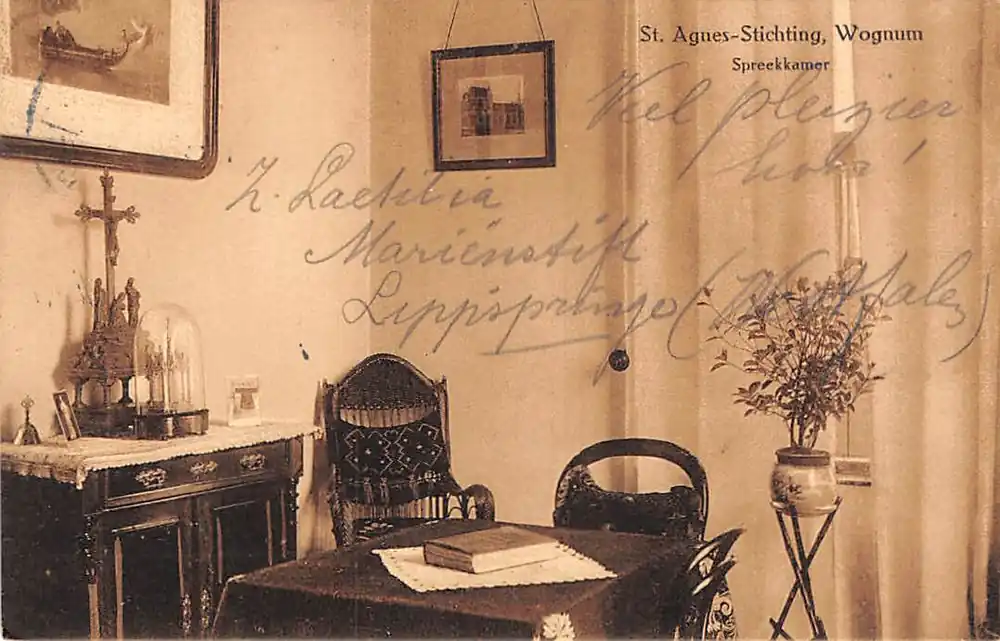 St. Agnes-Stichting, Wognum
Spreekkamer
Viel plezier
Z. Laetitia
Mariënstift
Lippspringe (Westfalen)